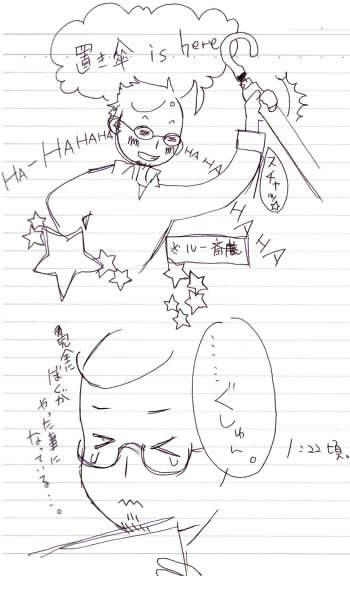 置き傘 is here
HA-HAHAHA
HAHA
スチャッ☆
HAHA
※ルー斎藤
………ぐしゅん。
1:22頃。
完全に
ばぐが
やった事に
なっている…。